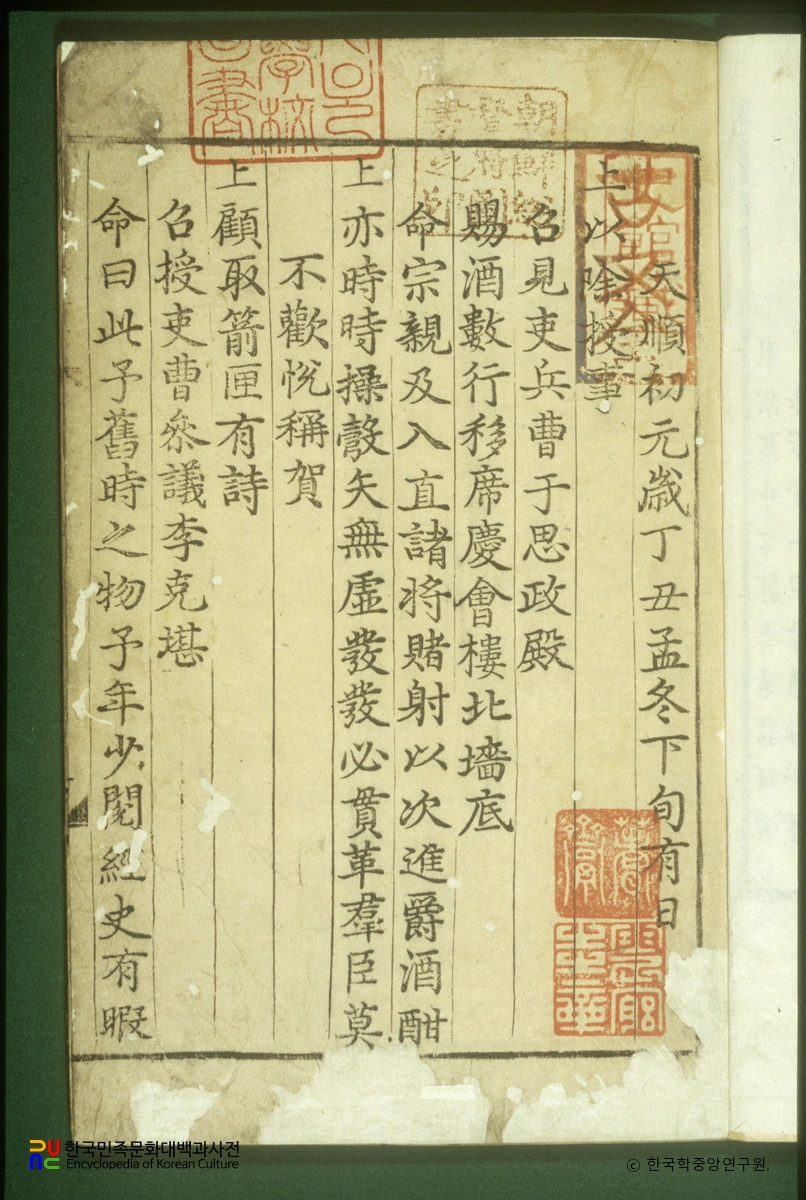 天順初元歲丁丑孟冬下旬有日
上以除授事
召見吏兵曹于思政殿
賜酒數行移席慶會樓北墻底
命宗親及入直諸將賭射以次進爵酒酣
上亦時時操彀矢無虛發發必貫革羣臣莫
不歡悅稱賀
上顧取箭匣有詩
召授吏曹叅議李克堪
命曰此予舊時之物予年少閱經史有暇
한국민족문화대백과사전
Encyclopedia of Korean Culture
© 한국학중앙연구원.